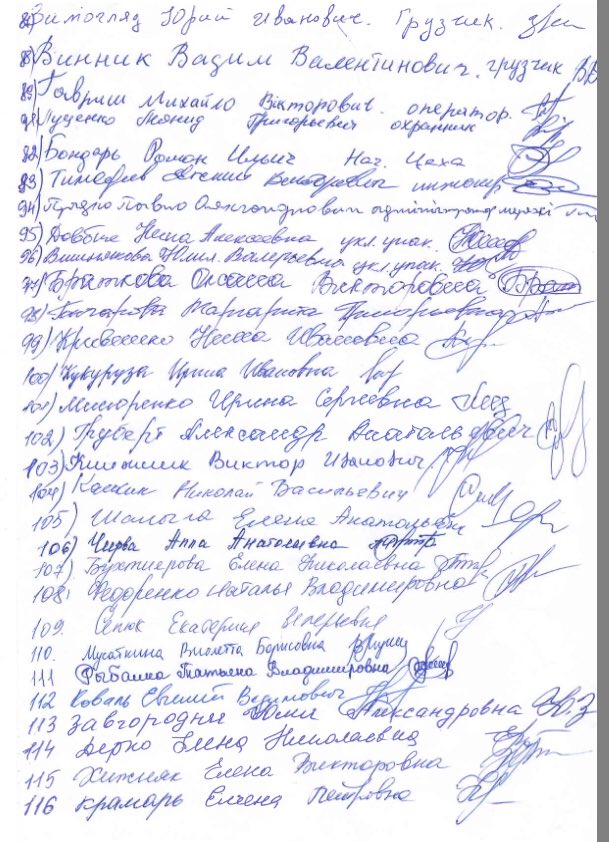 Зимогляд Юрий Иванович. Грузчик.
Винник Вадим Валентинович. грузчик
89) Гавриш Михайло Вікторович. оператор.
Луценко Леонид Григорьевич охранник
92) Бондарь Роман Ильич Нач. Цеха
93) Тимофеев Евгений Викторович инженер
94) Павло Олександрович адміністратор мережі
95) Довбня Нина Алексеевна укл. упак.
96) Вишнякова Юлия Валерьевна укл. упак.
97) Браткова Оксана Викторовна
98) Гончарова Маргарита Григорьевна
99) Кривошеко Нина Ивановна
100) Кукуруза Ирина Ивановна
101) Мисюренко Ирина Сергеевна
102) Груберт Александр Анатольевич
103) Книжник Виктор Иванович
104) Кашик Николай Васильевич
105) Шамыга Елена Анатольевна
106) Чирва Алла Анатолиевна
107) Елена Николаевна
108. Федоренко Наталья Владимировна
109. Сепик Екатерина Игоревна
110. Мусаткина Виолетта Борисовна
111 Рыбалка Татьяна Владимировна
112 Коваль Евгений Вадимович
113 Завгородняя Юлия Александровна
114 Дерко Елена Николаевна
115 Хижняк Елена Викторовна
116 Крамарь Елена Петровна